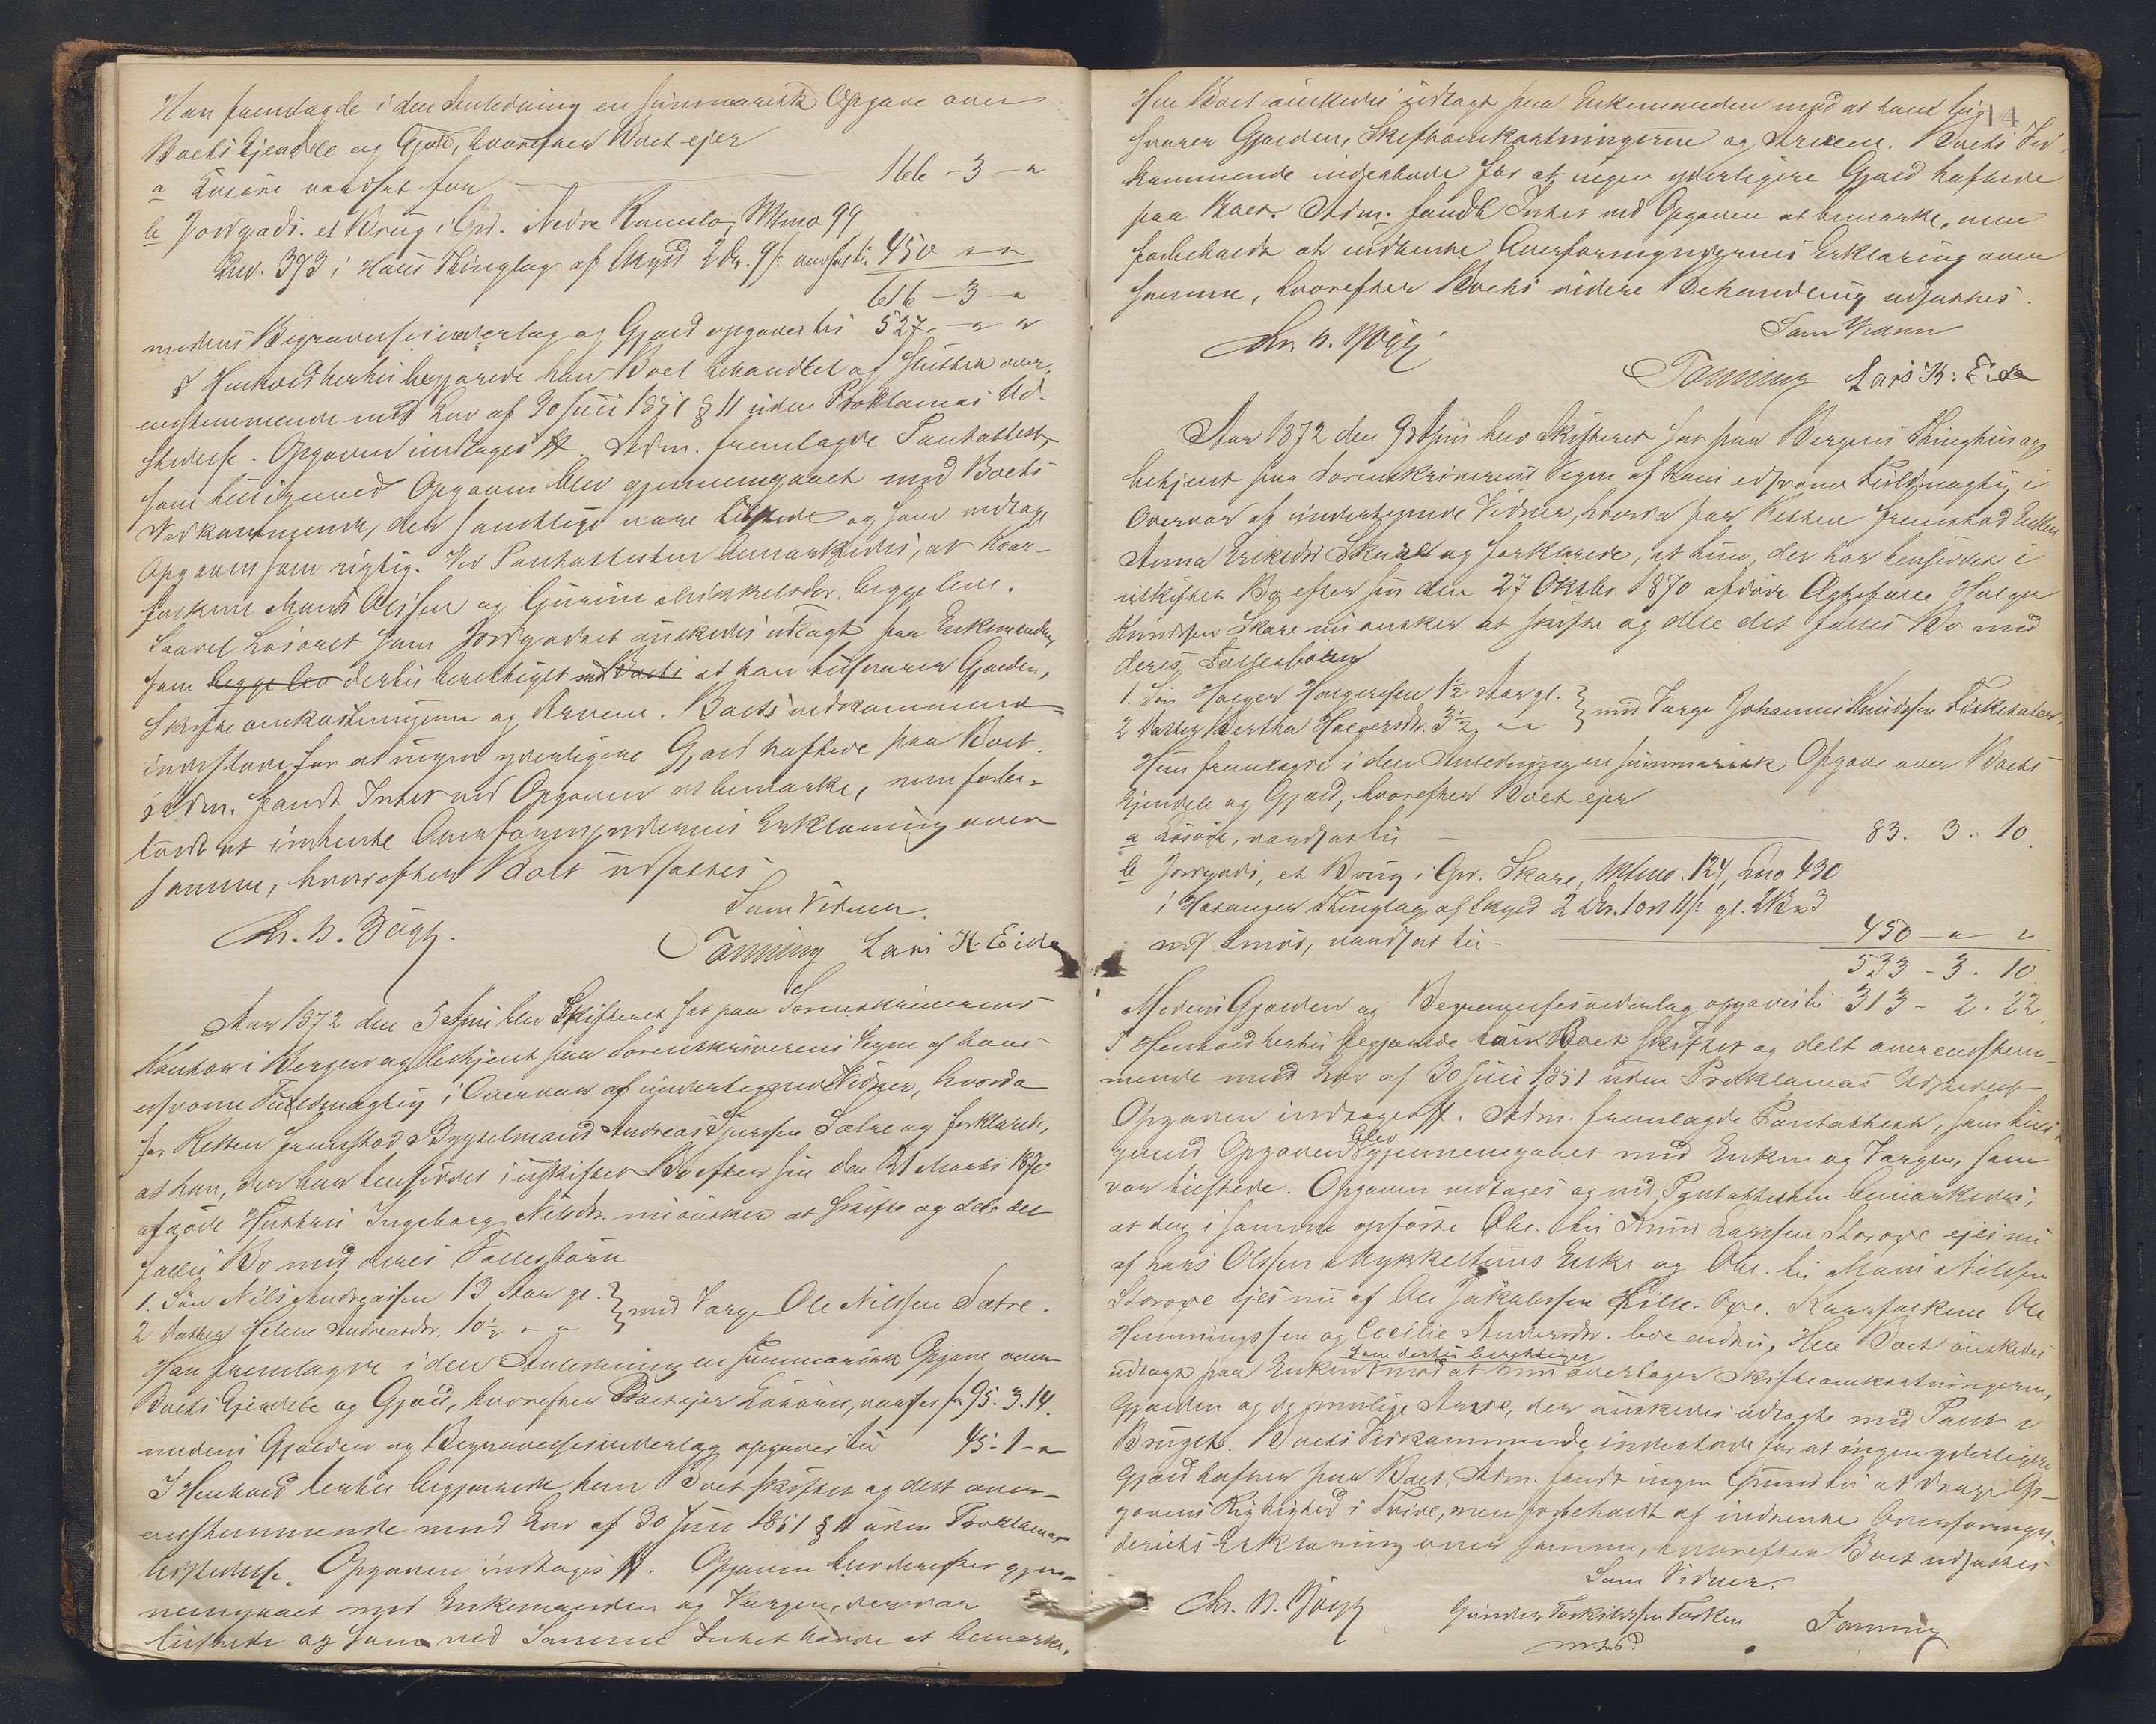 Han fremlagde i den Anledning en summarisk Opgave over
Boets Eiendele og Gjæld, hvorefter Boet ejer
a Løsøre værdsat for 166 - 3 - "
b Jordgods. et Brug i Grd. Nedre Mtrno 99
Lno. 393 i Haus Thinglag af Skyld 2 Dlr. 9 s. værdsat til 450 " "
616 - 3 - "
medens Begravelsesvederlag og Gjæld opgaves til 527. - " "
I Henhold hertil begjærede han Boet behandlet af Skifteret over-
ensstemmende med Lov af 30 Juli 1851 § 11 uden Proklamas Ud-
stedelse. Opgaven indtages ff. Adm. fremlagde Pantattest,
som tilligemed Opgaven blev gjennemgaaet med Boets
Vedkommende, der samtlige vare tilstede og som vedtog
Opgaven som rigtig. Ved Pantattesten bemærkedes, at Kaar-
folkene Mons Olssen og Gurine Mikkelsdr. begge leve.
Saavel Løsøret som Jordgodset ønskedes udlagt paa Enkemanden,
som begge lev dertil berettiget mod Boets at han tilsvarer Gjælden,
Skifteomkostningerne og Arvene. Boets vedkommende
indestode for at ingen yderligere Gjæld haftede paa Boet.
Adm. fandt Intet ved Opgaven at bemærke, men forbe-
holdt at indhente Overformynderiets Erklæring over
samme, hvorefter Boet udsattes
Som Vidner.
Chr. B. Bøgh. Tønning Lars K. Eide
Aar 1872 den 5 April blev Skifteret sat paa Sorenskriverens
Kontor i Bergen og betjent paa Sorenskriverens Vegne af hans
edsvorne Fuldmægtig i Overvær af undertegnede Vidner, hvorda
for Retten fremstod Bygselmand Andreas Sjursen Sætre og forklarede,
at han, der har hensiddet i uskiftet Bo efter sin den 21 Marts 1870
afdøde Hustru Ingeborg Nilsdr. nu ønsker at skifte og dele det
fælles Bo med deres Fællesbørn
1. Søn Nils Andreassen 13 Aar gl. } med Værge Ole Nilssen Sætre.
2 Datter Helene Andreasdr. 10½ " "
Han fremlagde i den Anledning en summarisk Opgave over
Boets Eiendele og Gjæld, hvorefter Boet ejer Løsøre, værdsat for 95. 3. 14.
medens Gjælden og Begravelsesvederlag opgaves til 45 - 1 - "
I Henhold hertil begjærede han Boet skiftet og delt over-
ensstemmende med Lov af 30 Juli 1851 § 11 uden Proklamas
Udstedelse. Opgaven indtages ff. Opgaven blev derefter gjen-
nemgaaet med Enkemanden og Værgen, der var
tilstede og som ved Samme Intet havde at bemærke.
14
Hele Boet ønskedes udlagt paa Enkemanden mod at han til-
svarer Gjælden, Skifteomkostningerne og Arvene. Boets Ved-
kommende indestode for at ingen yderligere Gjæld haftede
paa Boet. Adm. fandt Intet ved Opgaven at bemærke, men
forbeholdt at indhente Overformynderiets Erklæring over
samme, hvorefter Boets videre Behandling udsattes.
Som Vidner
Chr. B. Bøgh Tønning Lars K. Eide
Aar 1872 den 9 April blev Skifteret sat paa Bergens Thinghus og
betjent paa Sorenskriverens Vegne af hans edsvorne Fuldmægtig i
Overvær af undertegnede Vidner, hvorda for Retten fremstod Enken
Anna Eriksdr Skare og forklarede, at hun, der har hensiddet i
uskiftet Bo efter sin den 27 Oktbr. 1870 afdøde Ægtefælle Holger
Knudssen Skare nu ønsker at skifte og dele det fælles Bo med
deres Fællesbørn
1. Søn Holger Holgersen 1½ Aar gl. } med Værge Johannes Knudssen
2 Datter Bertha Holgersdr. 3½ " "
Hun fremlagde i den Anledning en summarisk Opgave over Boets
Eiendele og Gjæld, hvorefter Boet ejer
a Løsøre, værdsat til 83. 3. 10.
b Jordgods, et Brug i Grd. Skare, Mtrno. 124, Lno 430
i Hosanger Thinglag af Skyld 2 Dlr. 1 ort 11 s.
værdsat til - 450 - " "
533 - 3. 10.
Medens Gjælden og Begravelsesvederlag opgaves til 313 - 2. 22.
I Henhold hertil begjærede hun Boet skiftet og delt overensstem-
mende med Lov af 30 Juli 1851 uden Proklamas Udstedelse
Opgaven indtages ff. Adm. fremlagde Pantattest, som tilli-
gemed Opgaven blev gjennemgaaet med Enken og Værgen, som
var tilstede. Opgaven vedtages og ved Pantattesten bemærkedes,
at den i samme opførte Obl. til Larssen ejes nu
af Lars Olssen Mykkeltuns Enke og Obl. til Mons Nilssen
ejes nu af Ole Jakobssen Kaarfolkene Ole
Hemmingssen og Cecilie Andersdr. leve endnu. Hele Boet ønskedes
udlagt paa Enken som dertil berettiget mod at hun overtager Skifteomkostningerne,
Gjælden og de mulige Arve, der ønskedes udlagte med Pant i
Bruget. Boets Vedkommende indestode for at ingen yderligere
Gjæld hefter paa Boet. Adm. fandt ingen Grund til at drage Op-
gavens Rigtighed i Tvivl, men forbeholdt at indhente Overformyn-
deriets Erklæring over samme, hvorefter Boet udsattes
Som Vidner.
Chr. B. Bøgh Tønning